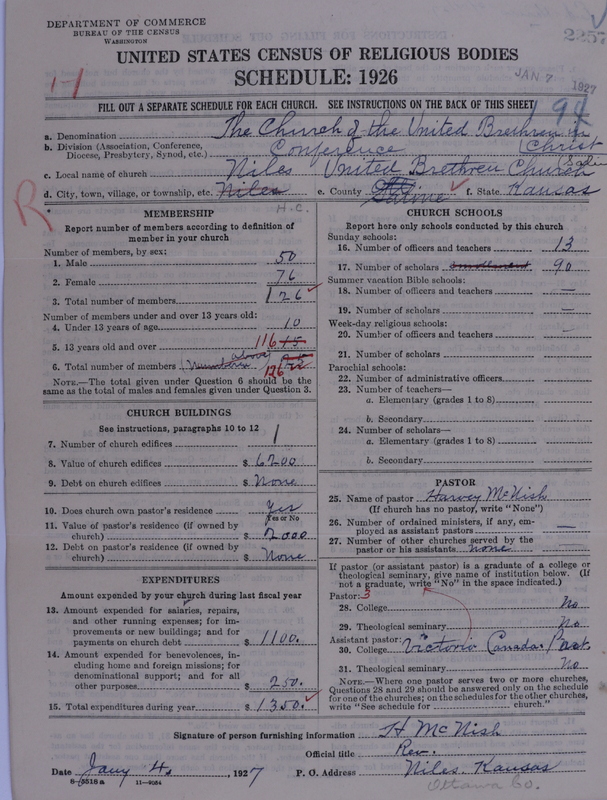 DEPARTMENT OF COMMERCE
BUREAU OF THE CENSUS
WASHINGTON
2257
UNITED STATES CENSUS OF RELIGIOUS BODIES
SCHEDULE: 1926
JAN 7 1927
FILL OUT A SEPARATE SCHEDULE FOR EACH CHURCH. SEE INSTRUCTIONS ON THE BACK OF THIS SHEET
a. Denomination The Church of the United Brethren in
b. Division (Association, Conference, Conference Christ
Diocese, Presbytery, Synod, etc.)
c. Local name of church Niles United Brethren Church
d. City, town, village, or township, etc. Niles e. County Saline f. State Kansas
R
H.C.
MEMBERSHIP
Report number of members according to definition of
member in your church
Number of members, by sex:
1. Male 50
2. Female 76
3. Total number of members 126
Number of members under and over 13 years old:
4. Under 13 years of age 10
5. 13 years old and over 116 15
6. Total number of members 126
NOTE.—The total given under Question 6 should be the
same as the total of males and females given under Question 3.
CHURCH BUILDINGS
See instructions, paragraphs 10 to 12
7. Number of church edifices 1
8. Value of church edifices $ 6200
9. Debt on church edifices $ None
10. Does church own pastor's residence? Yes
Yes or No
11. Value of pastor's residence (if owned by
church) $ 2000
12. Debt on pastor's residence (if owned by
church) $ None
EXPENDITURES
Amount expended by your church during last fiscal year
13. Amount expended for salaries, repairs,
and other running expenses; for im-
provements or new buildings; and for
payments on church debt $ 1100.
14. Amount expended for benevolences, in-
cluding home and foreign missions; for
denominational support; and for all
other purposes $ 250.
15. Total expenditures during year $ 1350.
CHURCH SCHOOLS
Report here only schools conducted by this church
Sunday schools:
16. Number of officers and teachers 13
17. Number of scholars enrollment 90
Summer vacation Bible schools:
18. Number of officers and teachers —
19. Number of scholars —
Week-day religious schools:
20. Number of officers and teachers —
21. Number of scholars
Parochial schools:
22. Number of administrative officers
23. Number of teachers—
a. Elementary (grades 1 to 8)
b. Secondary
24. Number of scholars—
a. Elementary (grades 1 to 8)
b. Secondary
PASTOR
25. Name of pastor Harvey McNish
(If church has no pastor, write "None")
26. Number of ordained ministers, if any, em-
ployed as assistant pastors —
27. Number of other churches served by the
pastor or his assistants none
If pastor (or assistant pastor) is a graduate of a college or
theological seminary, give name of institution below. (If
not a graduate, write "No" in the space indicated.)
Pastor: 3
28. College No
29. Theological seminary No
Assistant pastor:
30. College Victoria Canada
31. Theological seminary No
NOTE.—Where one pastor serves two or more churches,
Questions 28 and 29 should be answered only on the schedule
for one of the churches; on the schedules for the other churches,
write "See schedule for church."
Signature of person furnishing information H. McNish
Official title Rev.
Date Jany 4, 1927 P. O. Address Niles Kansas
8—5518a 11—9034 Ottawa Co.